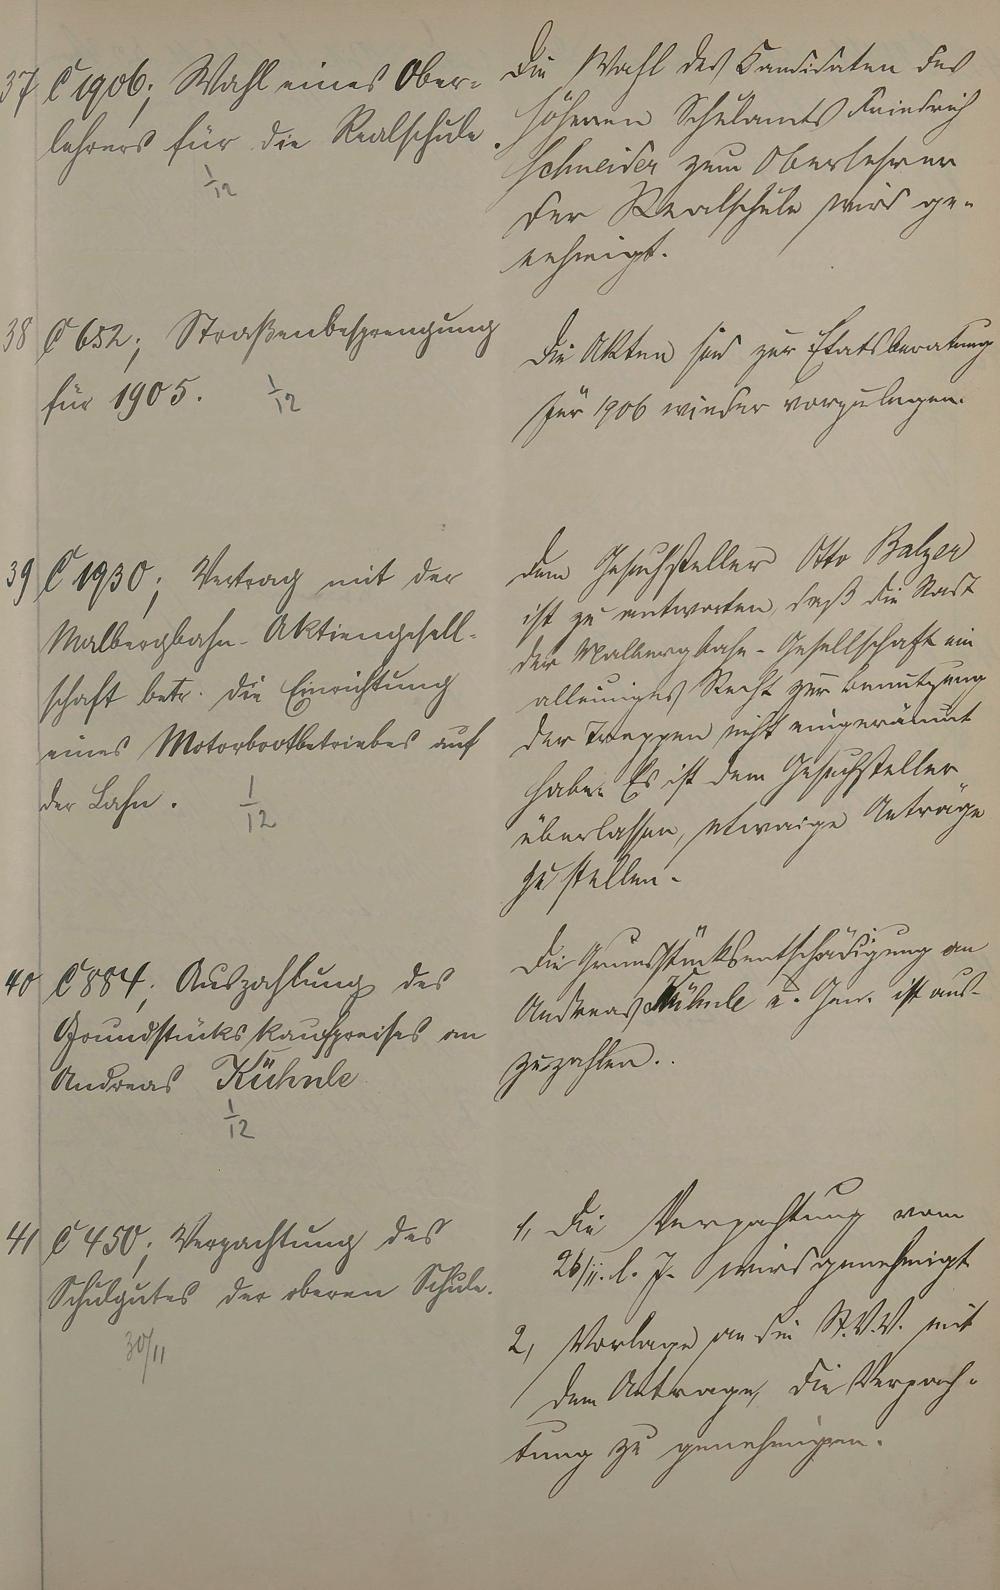 37 C 1906; Wahl eines Ober-
lehrers für die Realschule.
1/12
Die Wahl des Candidaten des
höheren Schulamts Friedrich
Schneider zum Oberlehrer
der Realschule wird ge-
nehmigt.
38 C 652; Straßenbesprengung
für 1905.
1/12
Die Akten sind zur Etatsberatung
für 1906 wieder vorzulegen.
39 C 1930; Vertrag mit der
Malbergbahn-Aktiengesell-
schaft betr. die Einrichtung
eines Motorbootbetriebes auf
der Lahn.
1/12
Dem Gesuchsteller Otto Balzer
ist zu antworten, daß die Stadt
der Malbergbahn-Gesellschaft ein
alleiniges Recht zur Benutzung
der Treppen nicht eingeräumt
habe. Es ist dem Gesuchsteller
überlassen, etwaige Anträge
zu stellen.
40 C 884; Auszahlung des
Grundstückskaufpreises an
Andreas Kühnle
1/12
Die Grundstücksentschädigung an
Andreas Kühnle u. Gen. ist aus-
zuzahlen.
41 C 450; Verpachtung des
Schulgutes der oberen Schule.
30/11
1, Die Verpachtung vom
26/11. l. J. wird genehmigt
2, Vorlage an die St.V.V. mit
dem Antrage, die Verpach-
tung zu genehmigen.